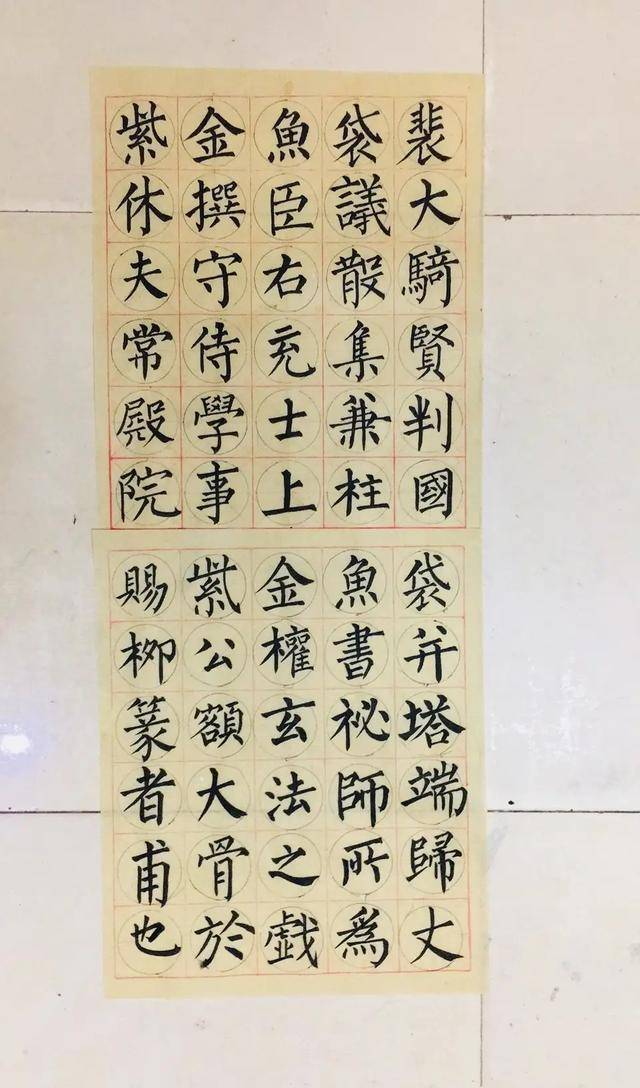 紫金魚袋裴
休撰臣議大
夫守右散騎
常侍充集賢
殿學士兼判
院事上柱國
賜紫金魚袋
柳公權書并
篆額玄祕塔
者大法師端
甫骨之所歸
也於戲爲丈